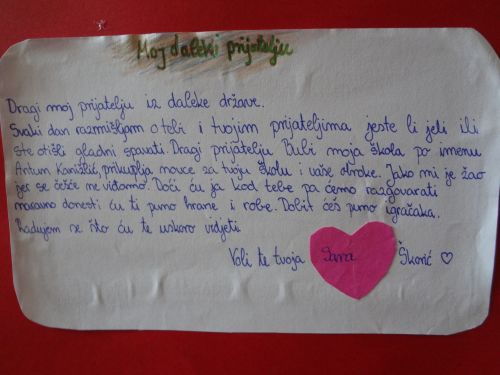 Moj daleki prijatelju
Dragi moj prijatelju iz daleke države.
Svaki dan razmišljam o tebi i tvojim prijateljima jeste li jeli ili
ste otišli gladni spavati. Dragi prijatelju Bubi moja škola po imenu
Antun Kanižlić, prikuplja novce za tvoju školu i vaše obroke. Jako mi je žao
jer se češće ne viđamo. Doći ću ja kod tebe pa ćemo razgovarati
naravno donesti ću ti puno hrane i robe. Dobit ćeš puno igračaka.
Radujem se što ću te uskoro vidjeti.
Voli te tvoja Sara Škorić ♡